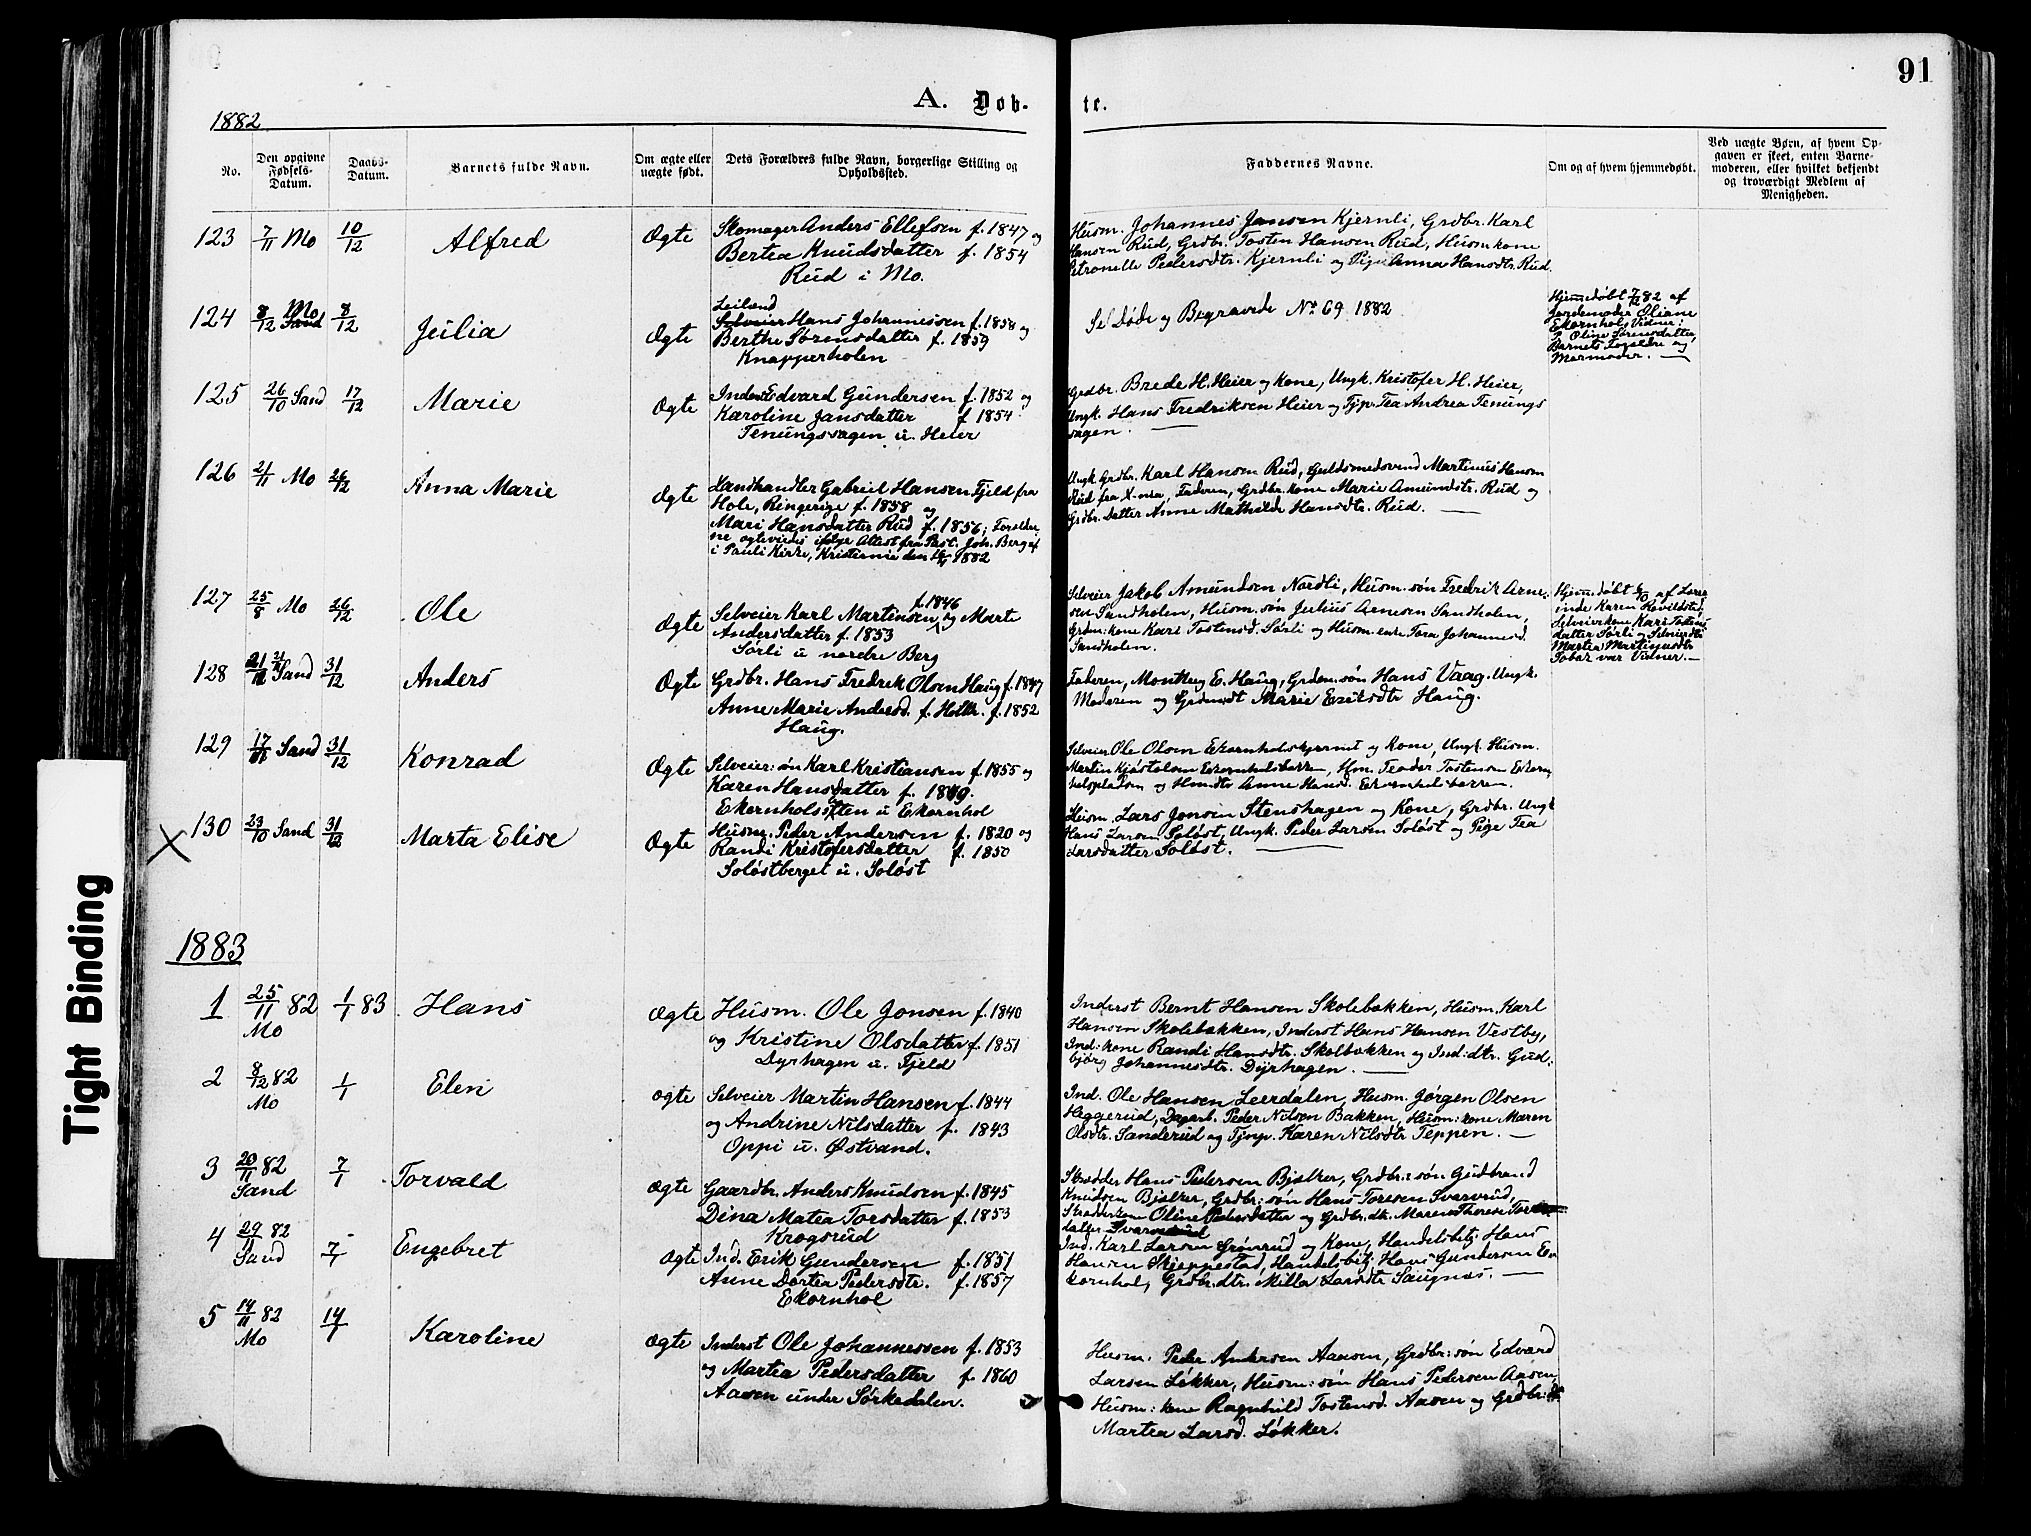 91
A. Døb-
te.
1882
No.
Den opgivne Fødsels-Datum.
Daabs-Datum.
Barnets fulde Navn.
Om ægte eller uægte født.
Dets Forældres fulde Navn, borgerlige Stilling og Opholdssted.
Faddernes Navne.
Om og af hvem hjemmedøbt.
Ved uægte Børn, af hvem Op-
gaven er skeet, enten Barne-
moderen, eller hvilket bekjendt
og troværdigt Medlem af
Menigheden.
123 7/11 Mo 10/12 Alfred Ægte
Skomager Anders Ellefsen f. 1847 og
Bertea Knudsdatter f. 1854
Rud i Mo.
Husm. Johannes Jansen Kjernli, Grdbr. Karl
Hansen Rud, Grdbr. Tosten Hansen Rud, Husm. kone
Petronelle Pedersdtr. Kjernli og Pige Anna Hansdtr. Rud.
124 8/12 Mo 8/12 Julia Ægte
Leilænd
Selveier Hans Johannessen f. 1858 og
Berthe Sørensdatter f. 1859
Knapperholen
Se Døde og Begravede No 69 1882
Hjemmedøbt 7/12 82 af
Jordemoder Oliane
Ekornhol. Vidner:
P. Oline Sørensdatter,
Barnets Forældre og
Mormoder. —
125 26/10 Sand 17/12 Marie Ægte
Inderst Edvard Gundersen f. 1852 og
Karoline Jansdatter f. 1854
Tenungssagen u. Heier
Grdbr. Brede H. Heier og Kone, Ungk. Kristofer H. Heier,
Ungk. Hans Fredriksen Heier og Tjp. Tea Andrea Tenungs
sagen. —
126 21/11 Mo 26/12 Anna Marie Ægte
Landhandler Gabriel Hansen Fjeld fra
Hole, Ringerige f. 1858 og
Mari Hansdatter Rud f. 1856; Foreldre
ne ægteviedes ifølge Attest fra Past. Joh. Berg af
i Pauli Kirke, Kristiania den 1882
Ungk. Grdbr. Karl Hansen Rud, Guldsmedsvend Martinus Hansen
Rud fra X-nia, Faderen, Grdbr. kone Marie Amundstr. Rud og
Grdbr. Datter Anne Mathilde Hansdtr. Rud. —
127 25/8 Mo 26/12 Ole Ægte
f. 1846
Selveier Karl Martinsen og Marte
Andersdatter f. 1853
Sørli u nordre Berg
Selveier Jakob Amundsen Nordli, Husm. søn Fredrik Arne-
sen Sandholen, Husm. søn Julius Arnesen Sandholen,
Grdm. kone Kari Tostensd. Sørli og Husm. enke Tora Johannesd.
Sandholen.
Hjemmedøbt af Lærer
inde Karen
Selveierkone Kari Tostens
datter Sørli og Selveierdtr.
Martea Martinusdtr.
var Vidner. —
128 Sand 31/12 Anders Ægte
Grdbr. Hans Fredrek Olsen Haug f. 1847
Anne Marie Andersd. f. 1852
Haug.
Faderen, E. Haug, Grdm. søn Hans Vaag. Ungk.
Moderen og Grdmdt Marie Eriksdtr Haug.
129 17/11 Sand 31/12 Konrad Ægte
Selveier: søn Karl Kristiansen f. 1855 og
Karen Hansdatter f. 1849.
u Ekornhol
Selveier Ole Olsen og Kone, Ungk. Husm.
Martin Ekornholsbakken, Hm. Teodor Tostensen Ekorn
holspladsen og Hmdtr Anne Hansd. Ekornholsbakken.
X 130 23/10 Sand 31/12 Marta Elise Ægte
Husm. Peder Andersen f. 1820 og
Randi Kristofersdatter f. 1850
Soløstberget u. Soløst
Husm. Lars Jonsen Stenshagen og Kone, Grdbr. Ungk
Hans Larsen Soløst, Ungk. Peder Larsen Soløst og Pige Tea
Larsdatter Soløst. —
1883
1 25/11 82 Mo 1/1 83 Hans Ægte
Husm. Ole Jonsen f. 1840
og Kristine Olsdatter f. 1851
Dyrhagen u. Fjeld
Inderst Bernt Hansen Skolebakken, Husm. Karl
Hansen Skolebakken, Inderst Hans Hansen Vestby,
Ind: kone Randi Hansdtr. Skolbakken og Ind: dtr. Gud:
bjørg Johannesdtr. Dyrhagen. —
2 8/12 82 Mo 1/1 Elen ægte
Selveier Martin Hansen f. 1844
og Andrine Nilsdatter f. 1843
Oppi u. Østvand.
Ind. Ole Hansen Leerdalen, Husm. Jørgen Olsen
Heggerud, Dagarb. Peder Nilsen Bakken, Husm: kone Maren
Olsdtr. Sanderud og Tjnp. Karen Nilsdtr Teppen. —
3 20/11 82 Sand 7/1 Torvald ægte
Gaardbr. Anders Knudsen f. 1845
Dina Matea Torsdatter f. 1853
Krogsrud
Skrædder Hans Pedersen Bjølker, Grdbr: søn Gudbrand
Knudsen Bjølker, Grdbr: søn Hans Toresen Svarverud,
Skrædderkone Oline Pedersdatter og Grdbr. dtr. Maren Therese Tors
datter Svarverud
4 29/11 82 Sand 7/1 Engebret Ægte
Ind. Erik Gundersen f. 1851
Anne Dortea Pedersdtr. f. 1857
Ekornhol
Ind. Karl Larsen Grønrud og Kone, Handelsbetj. Hans
Hansen Skjeppestad, Handelsbetj. Hans Gundersen Ek
kornhol, Grdbr. dtr. Milla Larsdtr Saugnæs. —
5 14/11 82 Mo 14/1 Karoline ægte
Inderst Ole Johannessen f. 1853
og Martia Pedersdatter f. 1860
Aasen under Sørkedalen.
Husm. Peder Andersen Aansen, Grdbr: søn Edvard
Larsen Løkker, Husm: søn Hans Pedersen Aasen,
Husm: kone Ragnhild Tostensd. Aasen og Grdbr: dt
Martea Larsd. Løkker.
Tight Binding